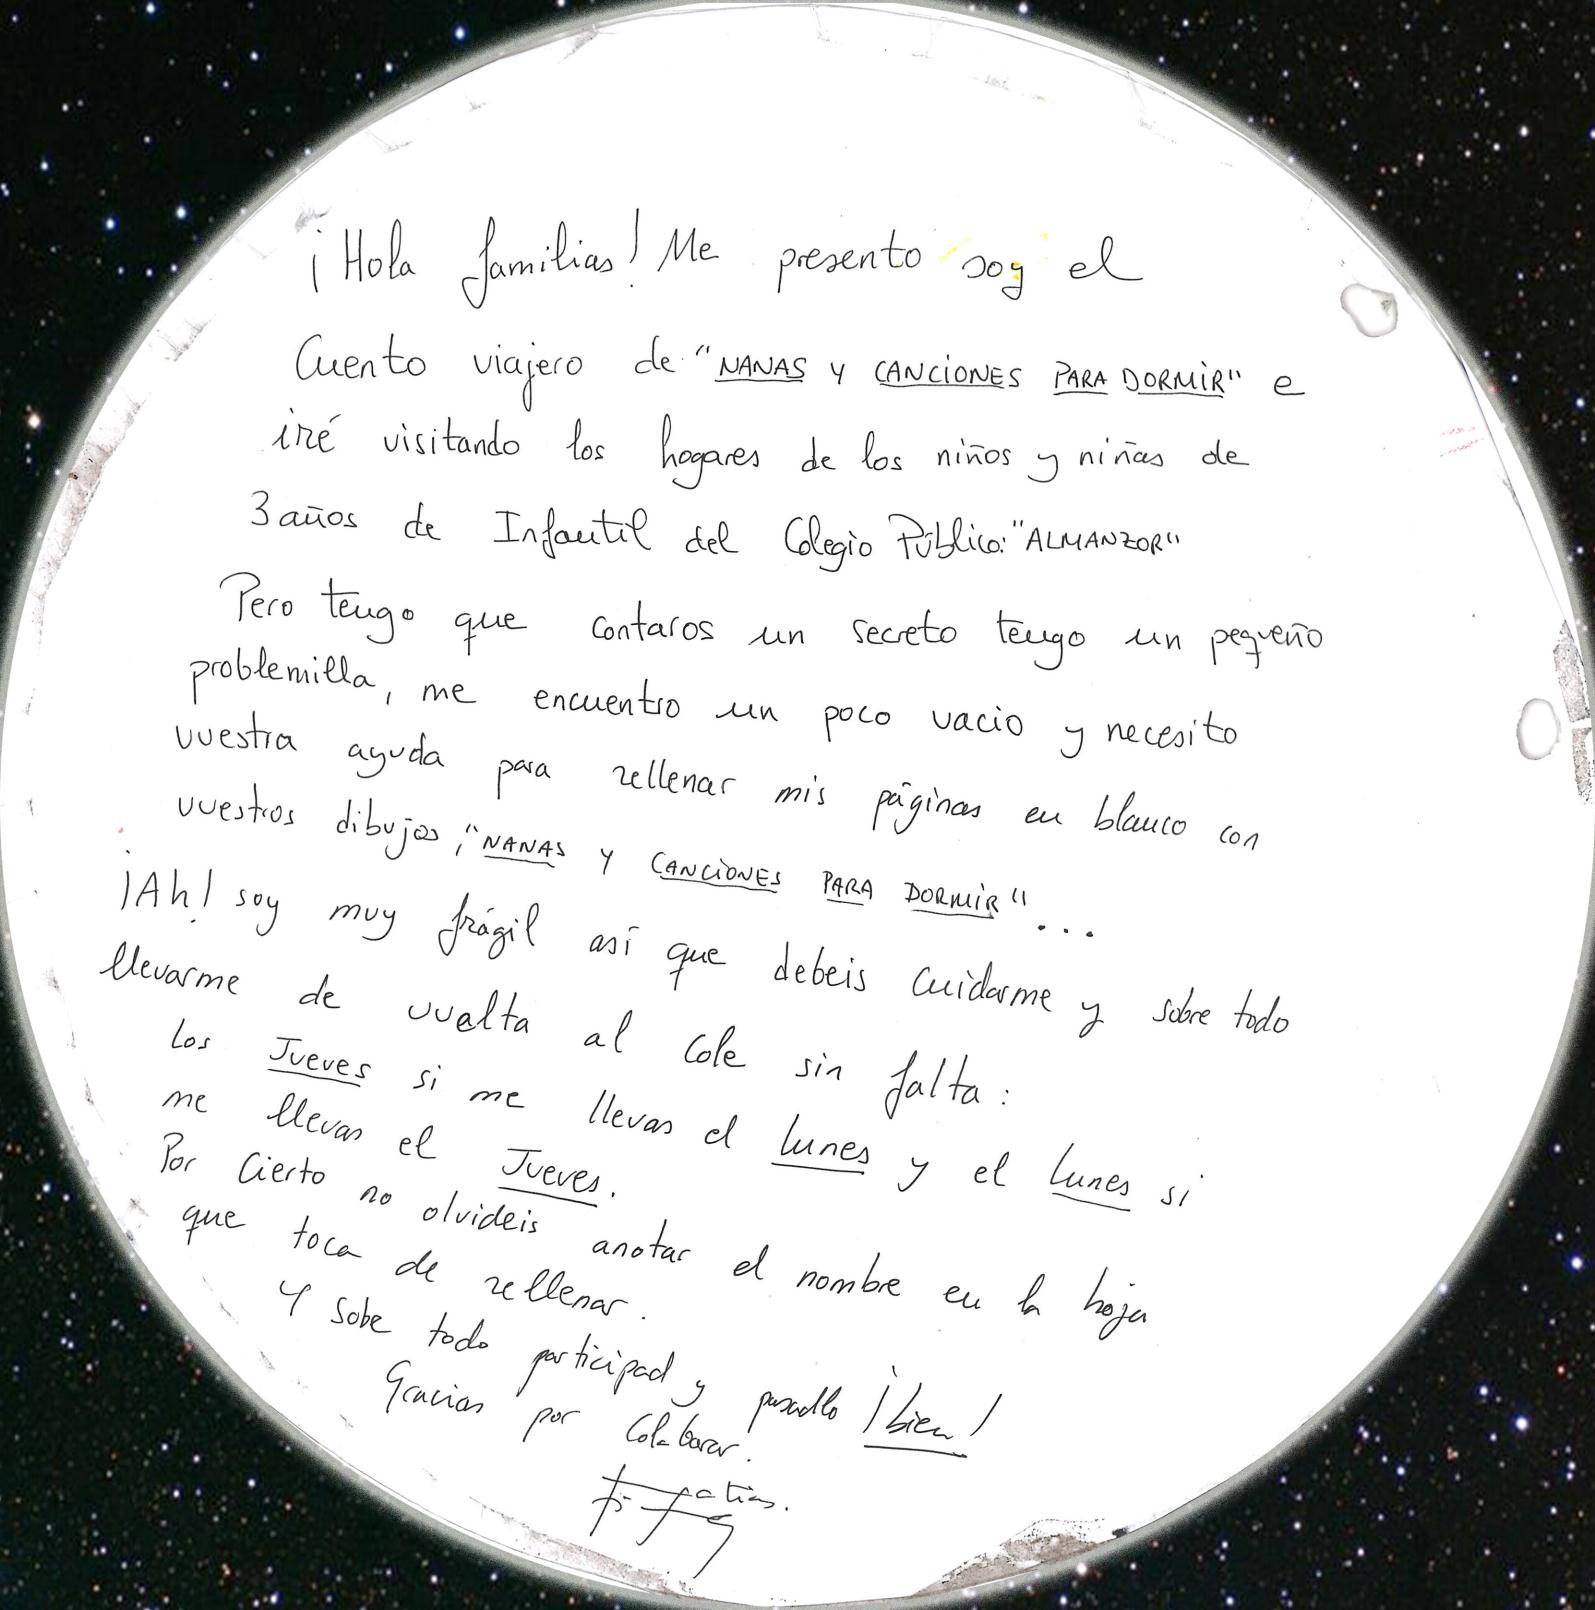 ¡Hola familias! Me presento soy el
Cuento viajero de "NANAS Y CANCIONES PARA DORMIR" e
iré visitando los hogares de los niños y niñas de
3 años de Infantil del Colegio Público: "ALMANZOR"
Pero tengo que contaros un secreto tengo un pequeño
problemilla, me encuentro un poco vacio y necesito
vuestra ayuda para rellenar mis páginas en blanco con
vuestros dibujos, "NANAS Y CANCIONES PARA DORMIR"...
¡Ah! soy muy frágil así que debeis cuidarme y sobre todo
llevarme de vuelta al cole sin falta:
Los Jueves si me llevas el lunes y el lunes si
me llevas el Jueves.
Por cierto no olvideis anotar el nombre en la hoja
que toca de rellenar.
Y sobe todo participad y pasadlo ¡bien!
Gracias por colaborar.